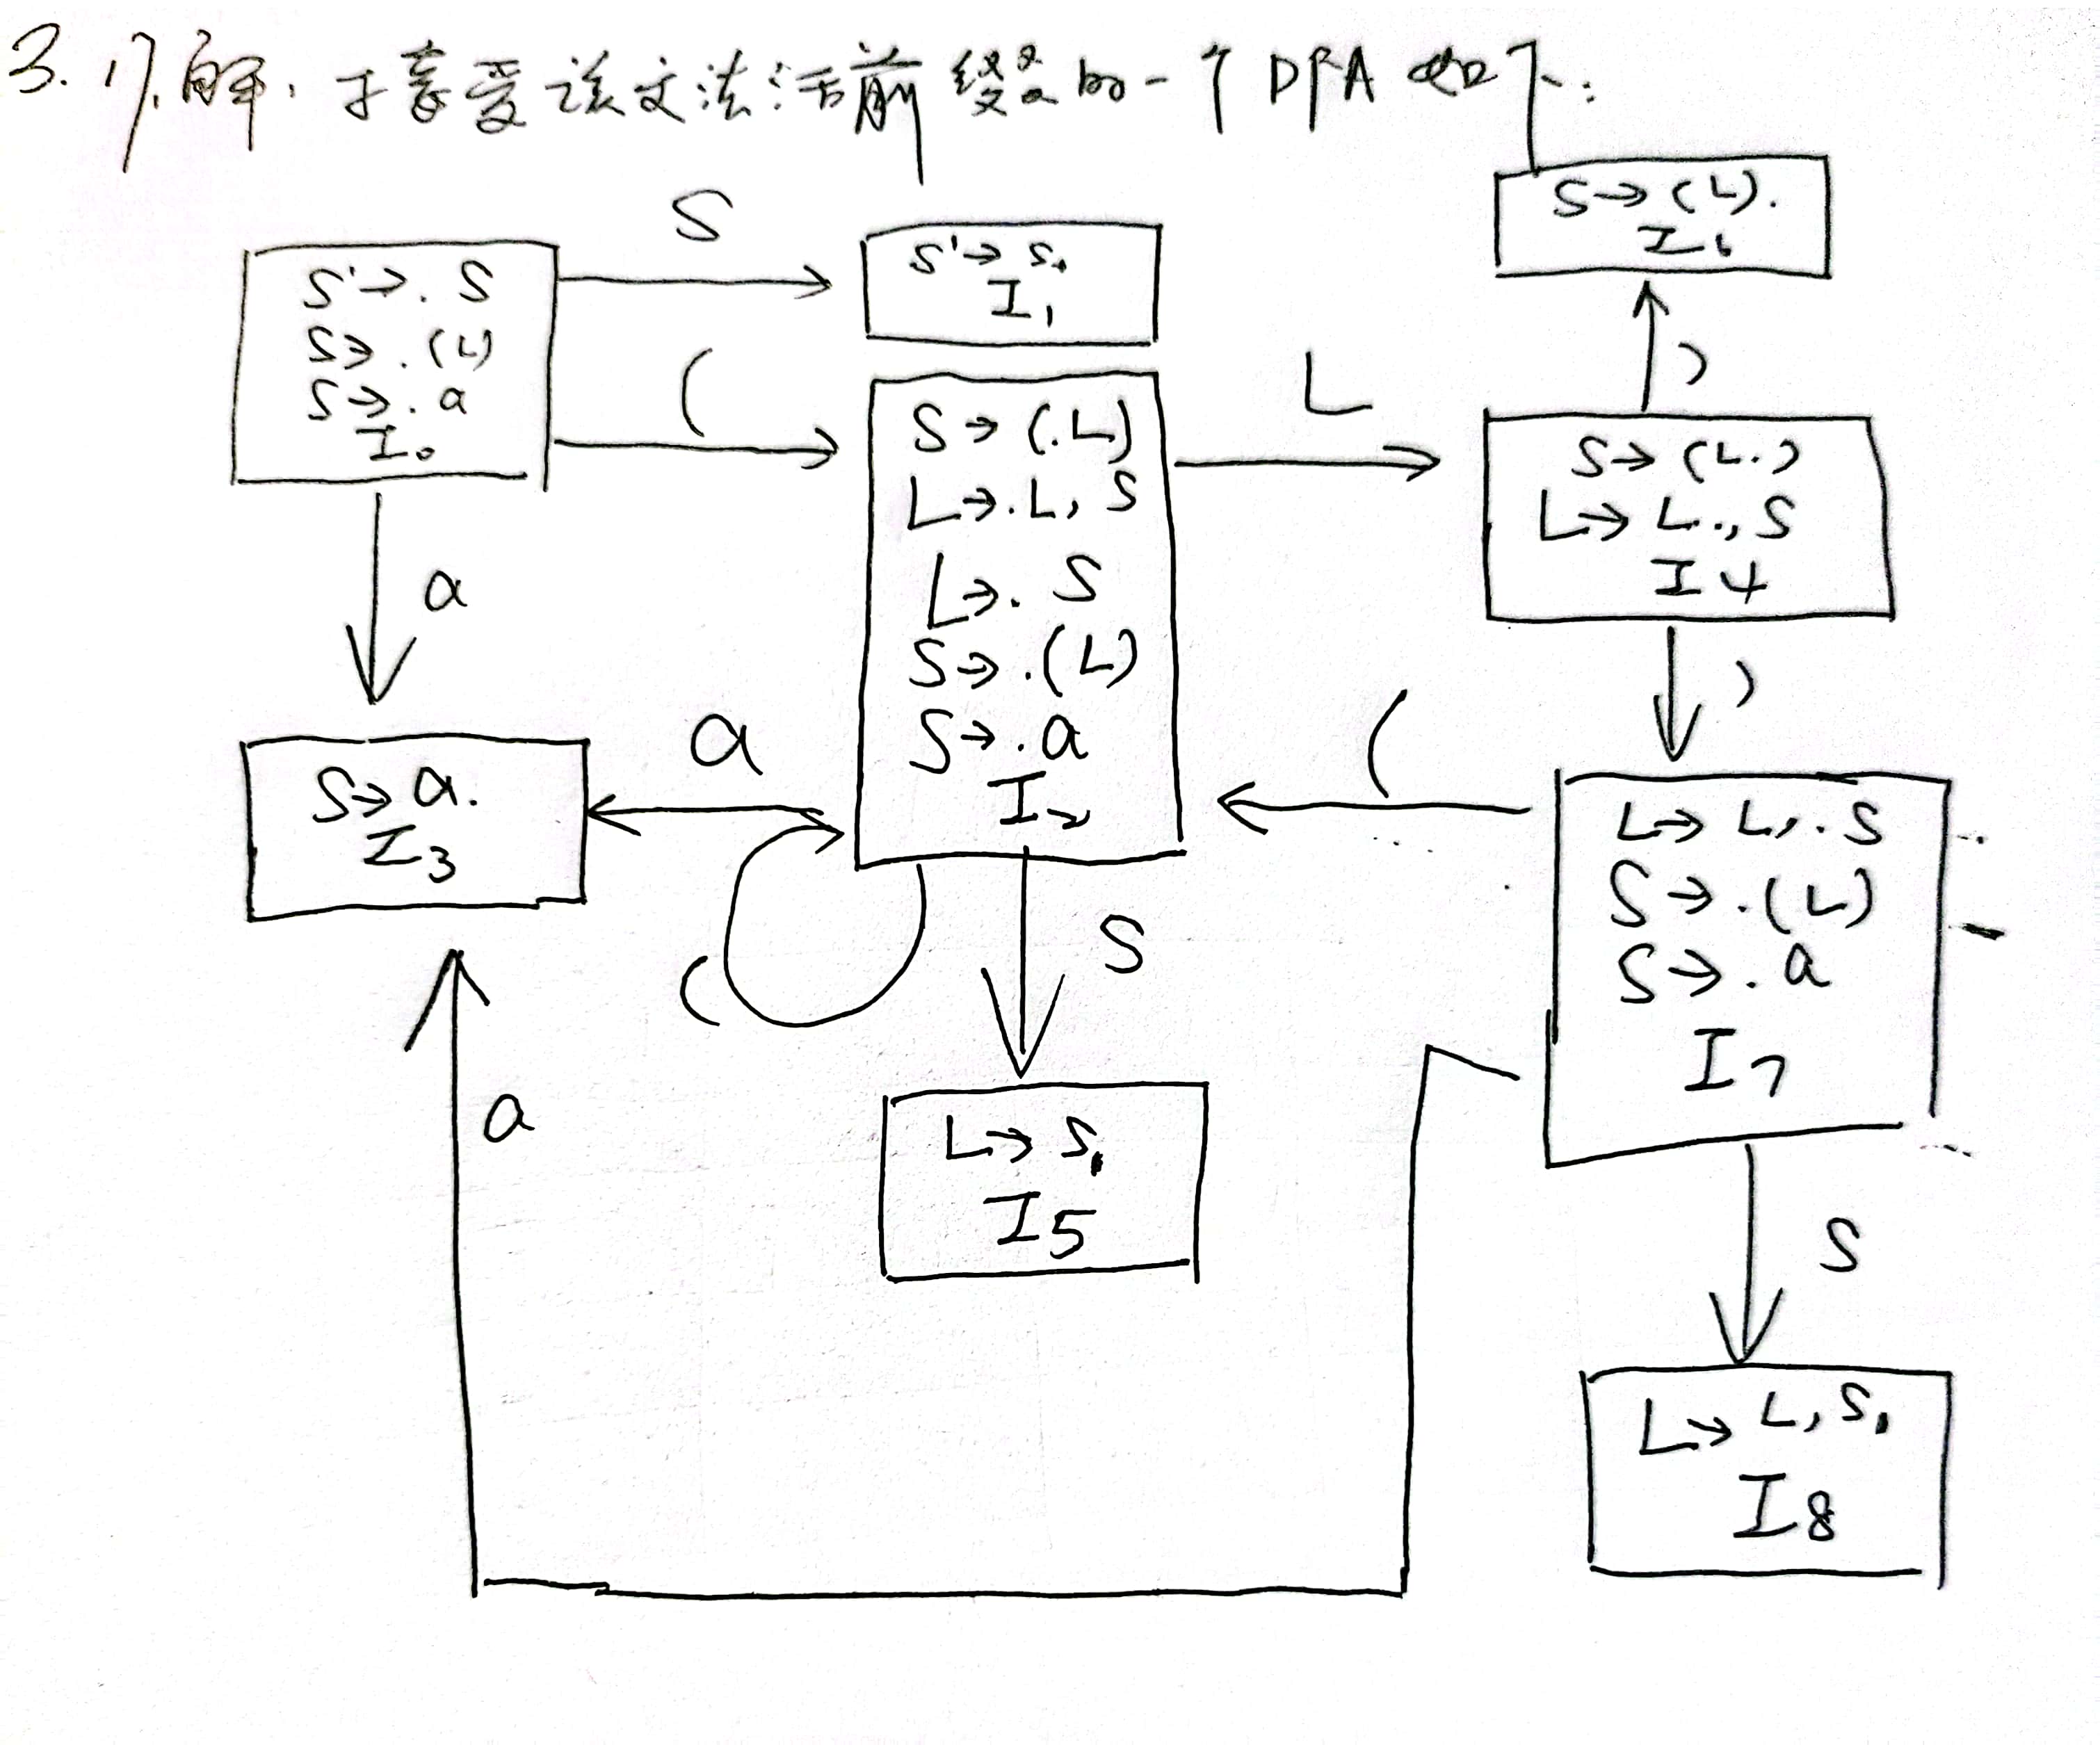 3. 1). 解: 于接受该文法活前缀的一个DFA如下:
S
S→(L).
I6
S'→.S
S→.(L)
S→.a
I0
S'→S.
I1
(
L
)
S→(.L)
L→.L, S
L→.S
S→.(L)
S→.a
I2
S→(L.)
L→L., S
I4
a
)
a
(
S→a.
I3
L→L, .S
S→.(L)
S→.a
I7
(
S
a
L→S.
I5
S
L→L, S.
I8